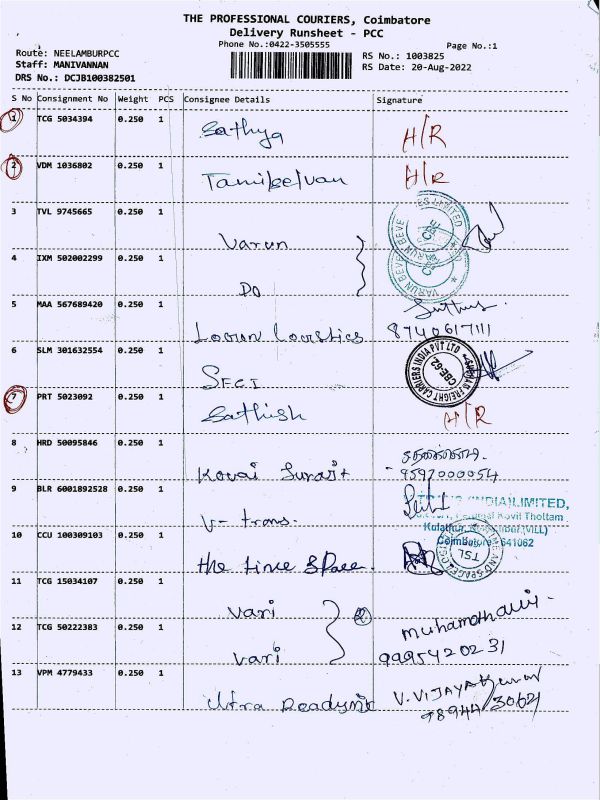 THE PROFESSIONAL COURIERS, Coimbatore
Delivery Runsheet - PCC
Phone No.:0422-3505555
Page No.:1
Route: NEELAMBURPCC
RS No.: 1003825
Staff: MANIVANNAN
RS Date: 20-Aug-2022
DRS No.: DCJB100382501
S No Consignment No Weight PCS Consignee Details Signature
1 TCG 5034394 0.250 1 Sathya H/R
2 VDM 1036802 0.250 1 Tamilselvan H/R
3 TVL 9745665 0.250 1 Varun
VARUN BEVE ES LIMITED
4 IXM 502002299 0.250 1 Do
VARUN BEVE
5 MAA 567689420 0.250 1 Logistics 8740617111
6 SLM 301632554 0.250 1 SFCI
FREIGHT CARRIERS INDIA PVT LTD
CBE-62
7 PRT 5023092 0.250 1 Sathish H/R
8 HRD 50095846 0.250 1 Kovai
9597000054
9 BLR 6001892528 0.250 1 V-trans.
(INDIA) LIMITED,
Kovil Thottam
(VILL)
Coimbatore 641062
10 CCU 100309103 0.250 1 the time Space.
TSL
11 TCG 15034107 0.250 1 Vari 2
12 TCG 50222383 0.250 1 Vari 9995420231
13 VPM 4779433 0.250 1 Ultra Readymix V. VIJAYAKumar